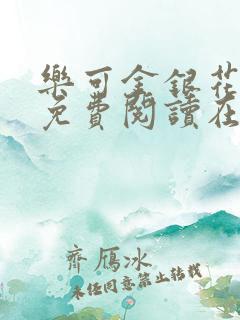 樂可金銀花
免費閱讀在
齊鴈冰
未经同意禁止转载